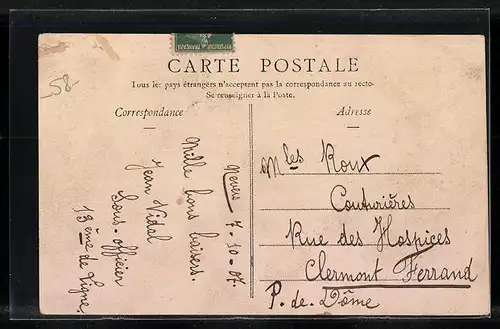 58-
CARTE POSTALE
Tous les pays étrangers n'acceptent pas la correspondance au recto-
Se renseigner à la Poste.
Correspondance
Nevers 7-10-07.
Mille bons baisers.
Jean Vidal
Sous-officier
13ème de Ligne.
Adresse
Mles Roux
Couturières
Rue des Hospices
Clermont Ferrand
P.-de-Dôme